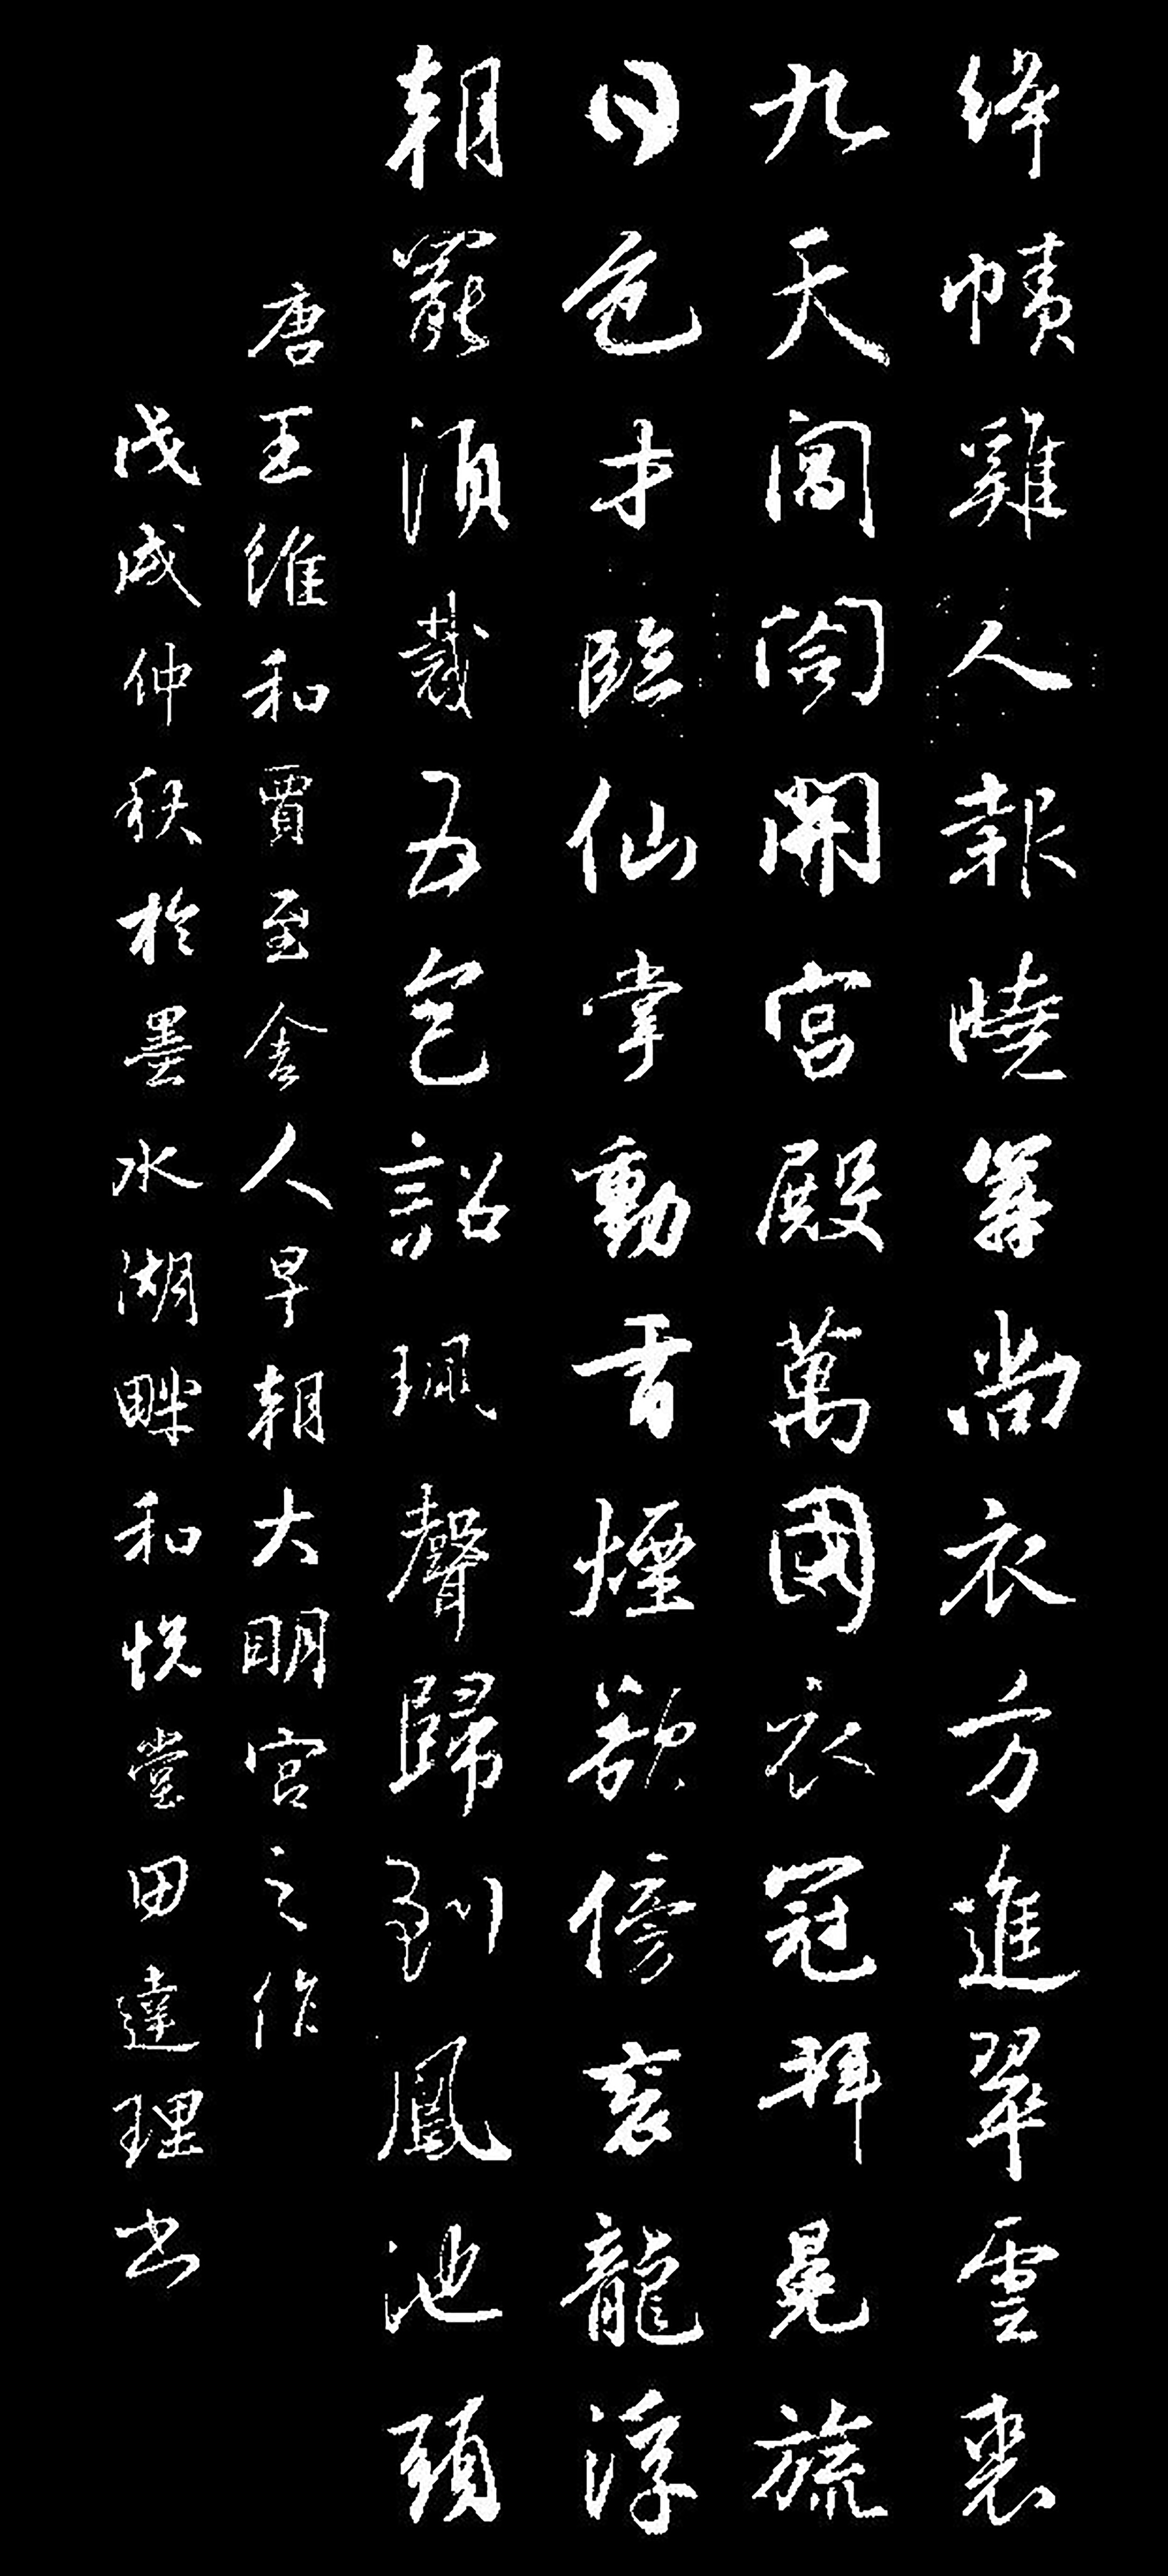 絳幘雞人報曉籌尚衣方進翠雲裘
九天閶闔開宮殿萬國衣冠拜冕旒
日色才臨仙掌動香煙欲傍袞龍浮
朝罷須裁五色詔珮聲歸到鳳池頭
唐王維和賈至舍人早朝大明宮之作
戊戌仲秋於墨水湖畔和悅堂田達理書